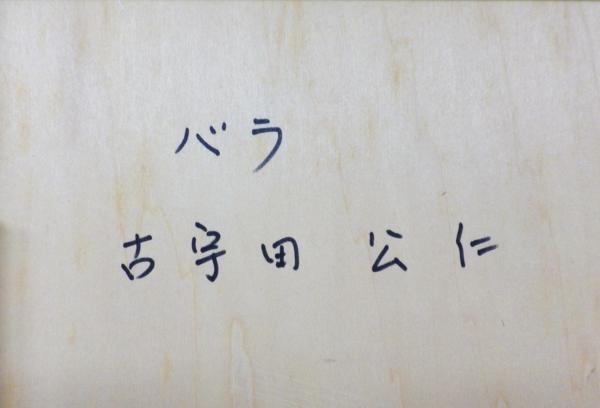 バラ
古宇田 公仁